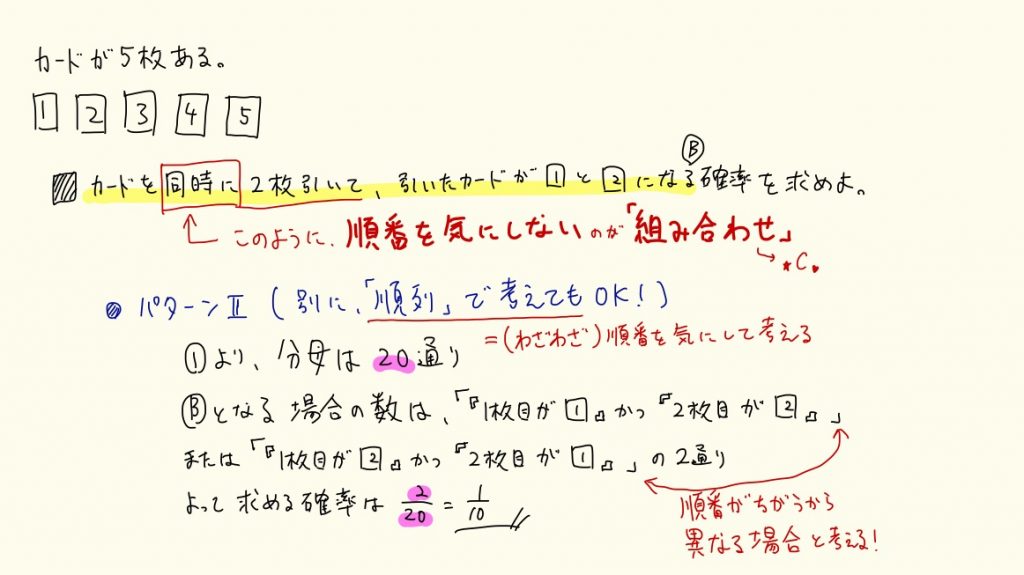 カードが5枚ある。
1 2 3 4 5
B
カードを同時に2枚引いて、引いたカードが1と2になる確率を求めよ。
このように、順番を気にしないのが「組み合わせ」
→ *C*
パターンⅡ(別に、「順列」で考えてもOK!)
=(わざわざ)順番を気にして考える
①より、分母は20通り
Ⓑとなる場合の数は、「『1枚目が1』かつ『2枚目が2』」
または「『1枚目が2』かつ『2枚目が1』」の2通り
よって求める確率は 2/20 = 1/10
順番がちがうから
異なる場合と考える!